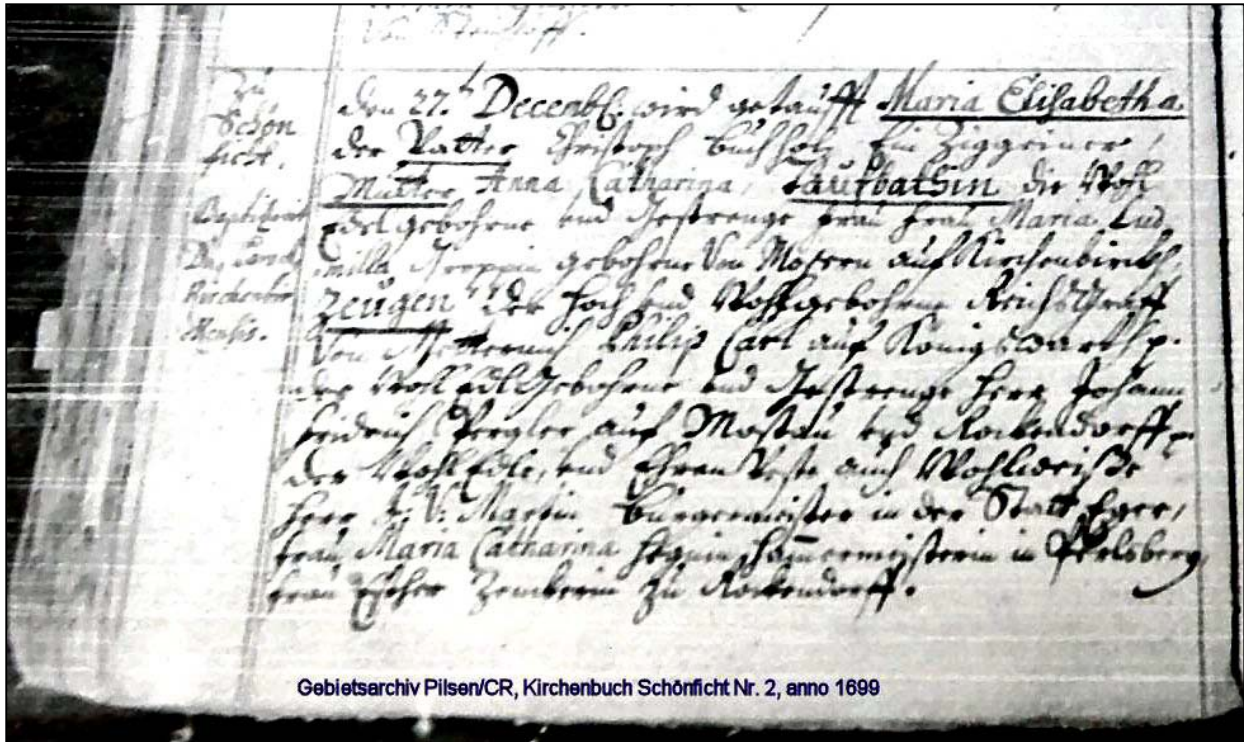 Von
Zu
Schön
ficht.
den 27.t Decembr: wird getaufft Maria Elisabetha
der Vatter Christoph Buchholz Ein Ziggeiner,
Mutter Anna Catharina, Taufbathin die Wohl
Edelgebohrne und Gestrenge frau frau Maria Lud
milla gebohrne Von Mosern auf Kirchenbirckh,
Zeugen der Hoch und Wohlgebohrne Reichs Graff
Von Metternich Philip Carl auf Königswarth p.
der Wohl Edl Gebohrne und Gestrenge Herr Johann
fridrich Pergler auf Mostau und Rockendorff p.
der Wohl Edle, und Ehren Veste auch Wohlweiße
Herr Martin Burgermeister in der Statt Eger,
frau Maria Catharina Hammermeisterin in Perlsberg,
frau Esther zu Rockendorff.
Gebietsarchiv Pilsen/CR, Kirchenbuch Schönficht Nr. 2, anno 1699